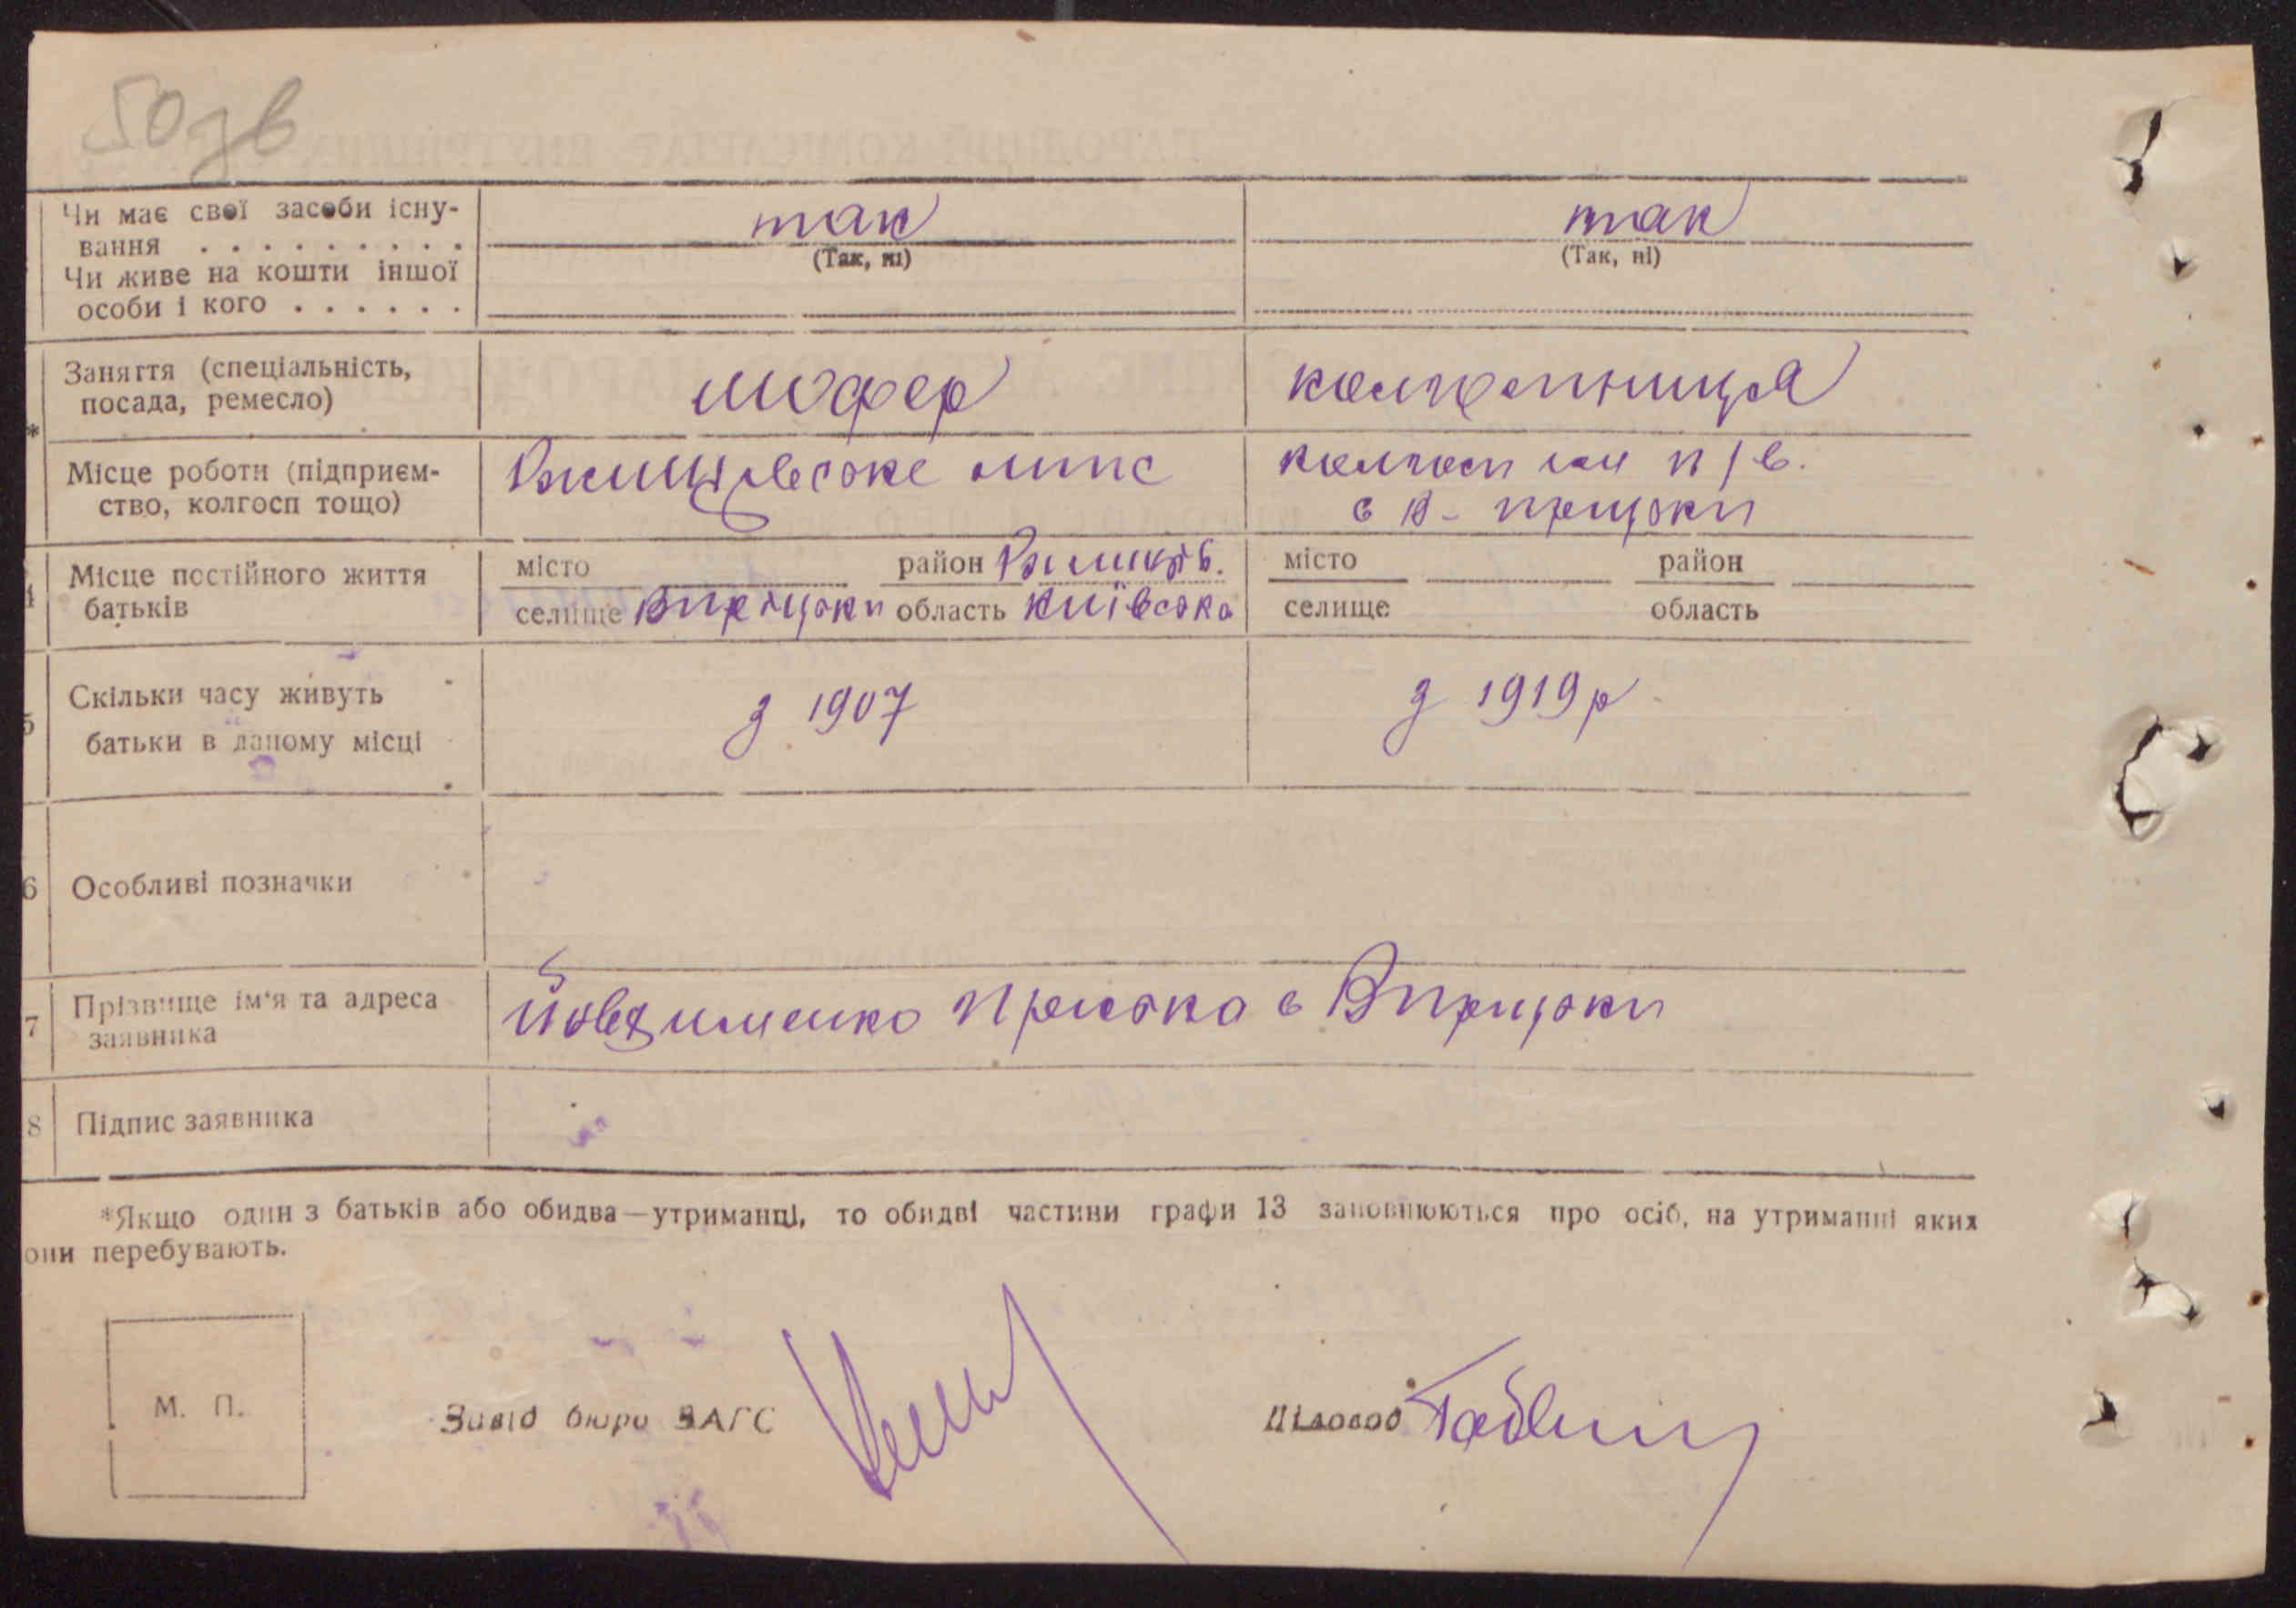 50зв
Чи має свої засоби існу-
вання . . . . . . . . .
так
так
(Так, ні)
(Так, ні)
Чи живе на кошти іншої
особи і кого . . . . . .
Заняття (спеціальність,
посада, ремесло)
шофер
колгоспниця
*
Місце роботи (підприєм-
ство, колгосп тощо)
Ржищівське мтс
колгосп ім п/в.
с В- прицьки
4 Місце постійного життя
батьків
місто район Ржищів.
селище Вприцьки область Київська
місто район
селище область
5 Скільки часу живуть
батьки в даному місці
з 1907
з 1919 р
6 Особливі позначки
7 Прізвище ім'я та адреса
заявника
Йовдименко Приська с Вприцьки
8 Підпис заявника
*Якщо один з батьків або обидва—утриманці, то обидві частини графи 13 заповнюються про осіб, на утриманні яких
они перебувають.
М. П.
Завід бюро ЗАГС
Діловод